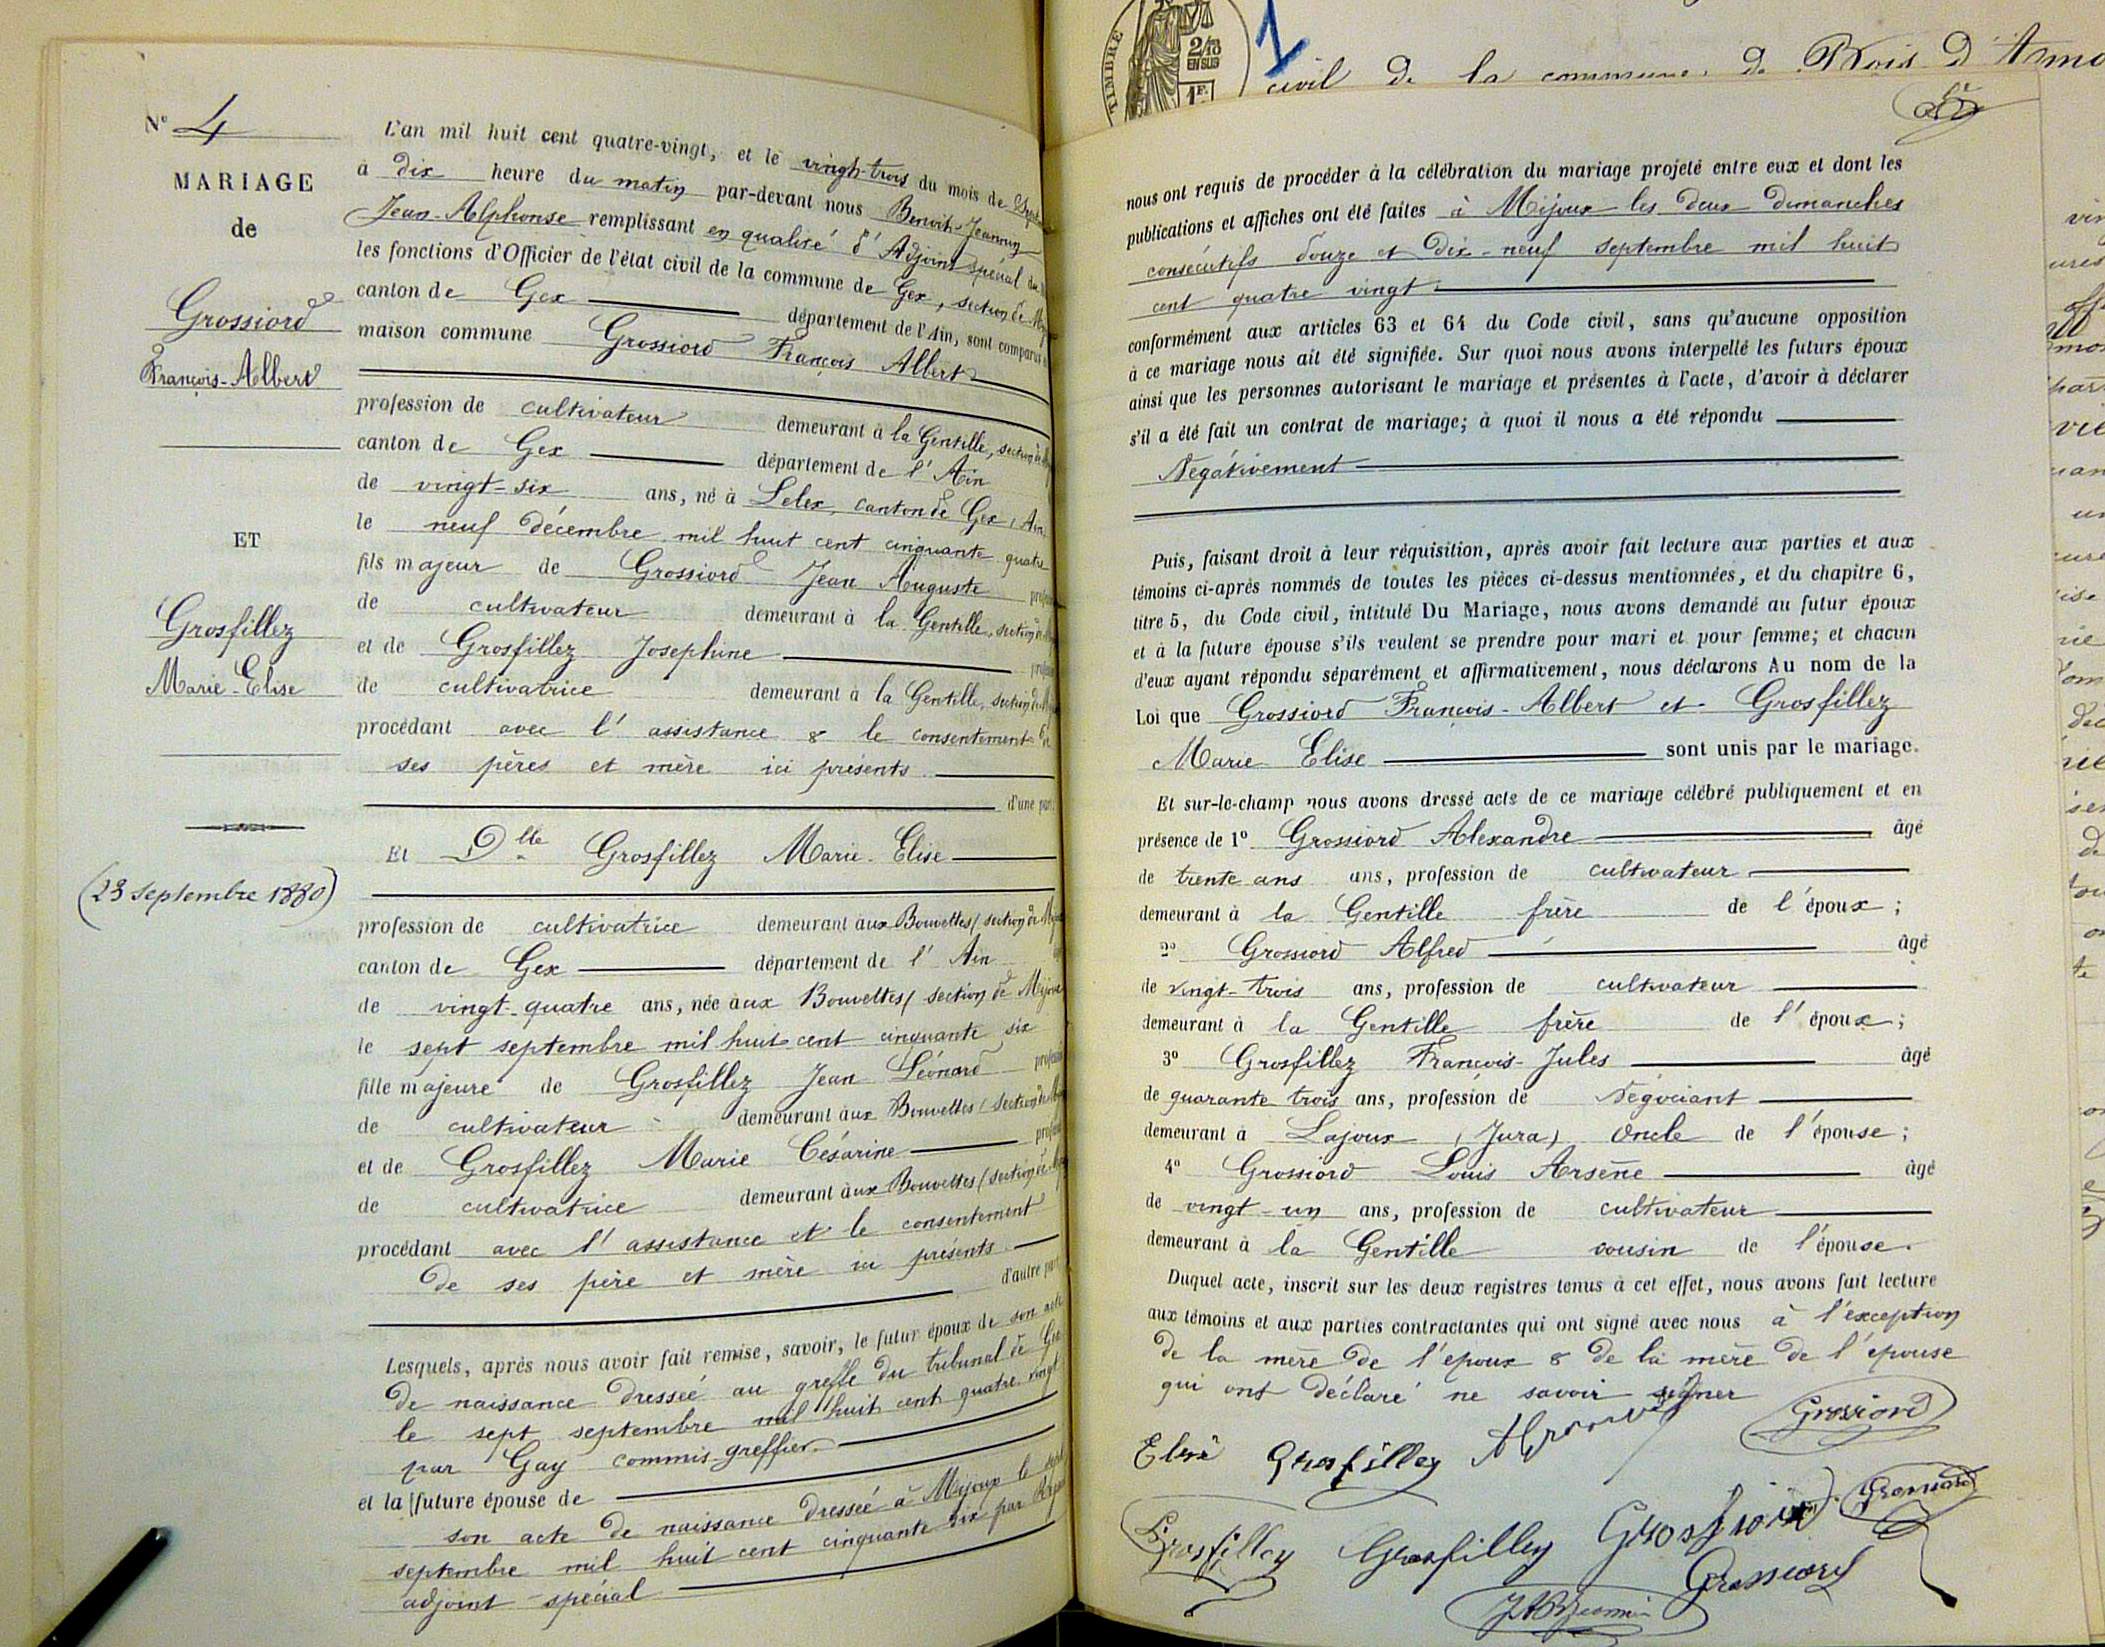 N° 4
MARIAGE
de
Grossiord
François-Albert
ET
Grosfillez
Marie-Elise
(23 septembre 1880)
L'an mil huit cent quatre-vingt, et le vingt-trois du mois de
à dix heure du matin par-devant nous Benoit-Jeannin
Jean-Alphonse remplissant en qualité d'Adjoint spécial
les fonctions d'Officier de l'état civil de la commune de Gex, section de
canton de Gex département de l'Ain, sont comparus
maison commune Grossiord François Albert
profession de cultivateur demeurant à la Gentille, section de
canton de Gex département de l'Ain
de vingt-six ans, né à Lelex, canton de Gex, Ain
le neuf décembre mil huit cent cinquante quatre
fils majeur de Grossiord Jean Auguste
de cultivateur demeurant à la Gentille, section
et de Grosfillez Josephine
de cultivatrice demeurant à la Gentille, section
procédant avec l'assistance & le consentement de
ses pères et mère ici présents
d'une part
Et Dlle Grosfillez Marie-Elise
profession de cultivatrice demeurant aux Bouvettes (section de
canton de Gex département de l'Ain
de vingt-quatre ans, née aux Bouvettes (section de Mijoux
le sept septembre mil huit cent cinquante six
fille majeure de Grosfillez Jean Léonard
de cultivateur demeurant aux Bouvettes (section
et de Grosfillez Marie Césarine
de cultivatrice demeurant aux Bouvettes (section de
procédant avec l'assistance et le consentement
de ses père et mère ici présents
d'autre part
Lesquels, après nous avoir fait remise, savoir, le futur époux de son acte
de naissance dressée au greffe du tribunal de
le sept septembre mil huit cent quatre vingt
par Gay commis-greffier
et la future épouse de
son acte de naissance dressée à Mijoux le
septembre mil huit cent cinquante six par
adjoint spécial
TIMBRE
2/10
EN SUS
1F.
1
civil de la commune de Bois d'Amo
nous ont requis de procéder à la célébration du mariage projeté entre eux et dont les
publications et affiches ont été faites à Mijoux les deux dimanches
consécutifs douze et dix-neuf septembre mil huit
cent quatre vingt
conformément aux articles 63 et 64 du Code civil, sans qu'aucune opposition
à ce mariage nous ait été signifiée. Sur quoi nous avons interpellé les futurs époux
ainsi que les personnes autorisant le mariage et présentes à l'acte, d'avoir à déclarer
s'il a été fait un contrat de mariage; à quoi il nous a été répondu
Négativement
Puis, faisant droit à leur réquisition, après avoir fait lecture aux parties et aux
témoins ci-après nommés de toutes les pièces ci-dessus mentionnées, et du chapitre 6,
titre 5, du Code civil, intitulé Du Mariage, nous avons demandé au futur époux
et à la future épouse s'ils veulent se prendre pour mari et pour femme; et chacun
d'eux ayant répondu séparément et affirmativement, nous déclarons Au nom de la
Loi que Grossiord François-Albert et Grosfillez
Marie Elise sont unis par le mariage.
Et sur-le-champ nous avons dressé acte de ce mariage célébré publiquement et en
présence de 1° Grossiord Alexandre âgé
de trente ans ans, profession de cultivateur
demeurant à la Gentille frère de l'époux;
2° Grossiord Alfred âgé
de vingt-trois ans, profession de cultivateur
demeurant à la Gentille frère de l'époux;
3° Grosfillez François-Jules âgé
de quarante trois ans, profession de Négociant
demeurant à Lajoux (Jura) Oncle de l'épouse;
4° Grossiord Louis Arsène âgé
de vingt-un ans, profession de cultivateur
demeurant à la Gentille cousin de l'épouse.
Duquel acte, inscrit sur les deux registres tenus à cet effet, nous avons fait lecture
aux témoins et aux parties contractantes qui ont signé avec nous à l'exception
de la mère de l'époux & de la mère de l'épouse
qui ont déclaré ne savoir signer
Elise Grosfilley Grossiord
Grosfilley Grosfilley Grossiord Grossiord
Grossiord